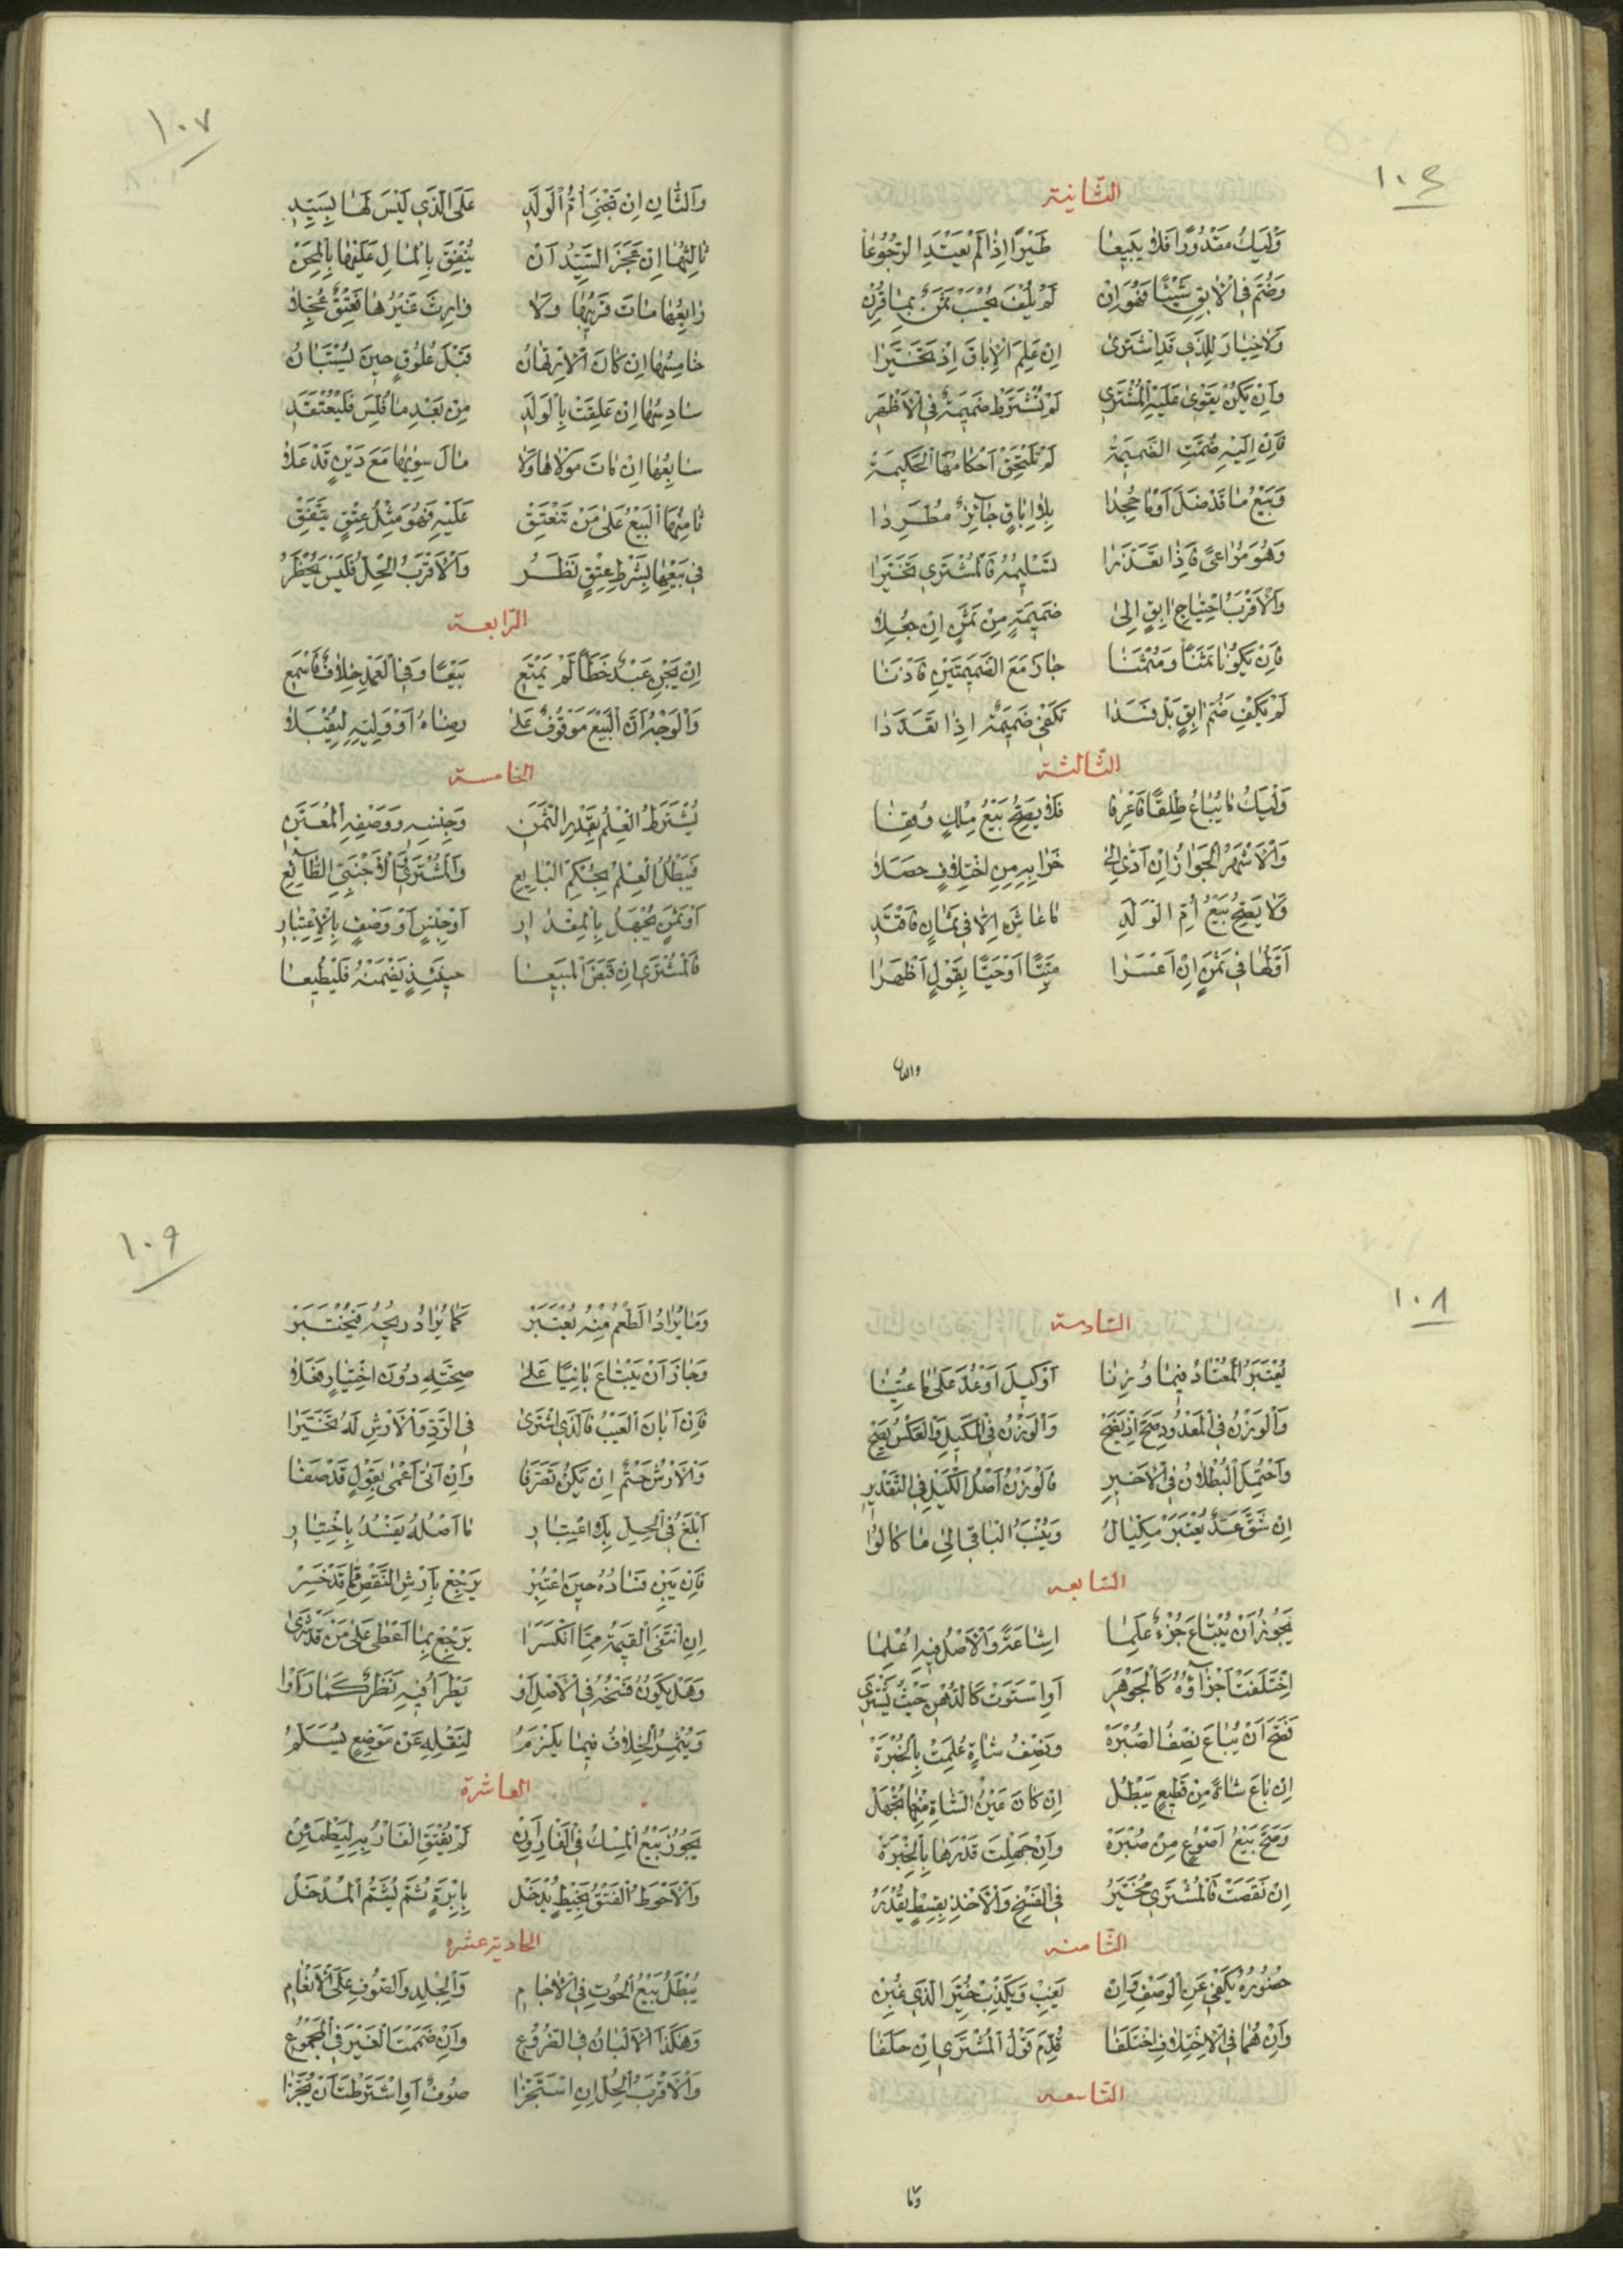 ١٠٦
الثانية
وَلْيَكُ مَقْدُورًا فَلَا يَبِيعَا طَيْرًا إِذَا لَمْ يَعْتَدِ الرُّجُوعَا
وَضُمَّ فِي الْآبِقِ شَيْئًا فَهُوَ إِنْ لَمْ يُلْفَ يُحْسَبْ ثَمَنٌ بِمَا قُرِنْ
وَلَا خِيَارَ لِلَّذِي قَدِ اشْتَرَى إِنْ عَلِمَ الْإِبَاقَ إِذْ تَخَيَّرَا
وَإِنْ يَكُنْ يَقْوَى عَلَيْهِ الْمُشْتَرِي لَمْ تُشْتَرَطْ ضَمِيمَةٌ فِي الْأَظْهَرِ
فَإِنْ إِلَيْهِ ضُمَّتِ الضَّمِيمَةْ لَمْ تَلْتَحِقْ أَحْكَامُهَا الْحَكِيمَةْ
وَبَيْعُ مَا قَدْ ضَلَّ أَوْ مَا جُحِدَا بِلَا إِبَاقٍ جَائِزٌ مُطَّرِدَا
وَهُوَ مُرَاعًى فَإِذَا تَعَذَّرَا تَسْلِيمُهُ فَالْمُشْتَرِي تَخَيَّرَا
وَالْأَقْرَبُ احْتِيَاجُ آبِقٍ إِلَى ضَمِيمَةٍ مِنْ ثَمَنٍ إِنْ جُعِلَا
فَإِنْ يَكُونَا ثَمَنًا وَمُثْمَنَا جَازَ مَعَ الضَّمِيمَتَيْنِ
لَمْ يَكْفِ ضَمُّ آبِقٍ بَلْ فَسَدَا تَكْفِي ضَمِيمَةٌ إِذَا تَعَدَّدَا
الثالثة
وَلْيَكُ مَا يُبَاعُ طِلْقًا فَاعْرِفَا فَلَا يَصِحُّ بَيْعُ مِلْكٍ وُقِفَا
وَالْأَشْهَرُ الْجَوَازُ إِنْ أَدَّى إِلَى خَرَابِهِ مِنِ اخْتِلَافٍ حَصَلَا
وَلَا يَصِحُّ بَيْعُ أُمِّ الْوَلَدِ مَا عَاشَ إِلَّا فِي ثَمَانٍ فَاقْتَدِ
أَوَّلُهَا فِي ثَمَنٍ إِنْ أَعْسَرَا مَيِّتًا أَوْ حَيًّا بِقَوْلٍ أَظْهَرَا
والثان
١٠٧
وَالثَّانِ إِنْ تَجْنِي أُمُّ الْوَلَدِ عَلَى الَّذِي لَيْسَ لَهَا بِسَيِّدِ
ثَالِثُهَا إِنْ عَجَزَ السَّيِّدُ أَنْ يُنْفِقَ بِالْمَالِ عَلَيْهَا بِالْمِحَنْ
رَابِعُهَا مَاتَ قَرِيبُهَا وَلَا وَارِثَ غَيْرُهَا فَعِتْقٌ عُجِّلَا
خَامِسُهَا إِنْ كَانَ الِارْتِهَانُ قَبْلَ عُلُوقٍ حِينَ يُسْتَبَانُ
سَادِسُهَا إِنْ عَلِقَتْ بِالْوَلَدِ مِنْ بَعْدِ مَا فُلِّسَ فَلْيُعْتَقَدِ
سَابِعُهَا إِنْ مَاتَ مَوْلَاهَا وَلَا مَالَ سِوَيهَا مَعَ دَيْنٍ قَدْ عَلَا
ثَامِنُهَا الْبَيْعُ عَلَى مَنْ تَنْعَتِقْ عَلَيْهِ فَهُوَ مِثْلُ عِتْقٍ يَتَّفِقْ
فِي بَيْعِهَا بِشَرْطِ عِتْقٍ نَظَرُ وَالْأَقْرَبُ الْحِلُّ فَلَيْسَ يُحْظَرُ
الرابعة
إِنْ يَجْنِ عَبْدٌ خَطَأً لَمْ يَمْنَعِ بَيْعًا وَفِي الْعَمْدِ خِلَافٌ فَاسْمَعِ
وَالْوَجْهُ أَنَّ الْبَيْعَ مَوْقُوفٌ عَلَى رِضَاهُ أَوْ وَلِيِّهِ لِيُقْبَلَا
الخامسة
يُشْتَرَطُ الْعِلْمُ بِقَدْرِ الثَّمَنِ وَجِنْسِهِ وَوَصْفِهِ الْمُعَيَّنِ
فَيَبْطُلُ الْعِلْمُ بِحُكْمِ الْبَايِعِ وَالْمُشْتَرِي وَالْأَجْنَبِيِّ الطَّايِعِ
أَوْ ثَمَنٍ يُجْهَلُ بِالْمِقْدَارِ أَوْ جِنْسٍ أَوْ وَصْفٍ بِالِاعْتِبَارِ
فَالْمُشْتَرِي إِنْ قَبَضَ الْمَبِيعَا حِينَئِذٍ يَضْمَنْهُ فَلْيُطِيعَا
١٠٨
السادسة
يُعْتَبَرُ الْمُعْتَادُ فِيمَا وُزِنَا أَوْ كِيلَ أَوْ عُدَّ عَلَى مَا عُيِّنَا
وَالْوَزْنُ فِي الْمَعْدُودِ صَحَّ إِذْ يَضِحْ وَالْوَزْنُ فِي الْمَكِيلِ وَالْعَكْسُ يَصِحْ
وَاحْتُمِلَ الْبُطْلَانُ فِي الْأَخِيرِ فَالْوَزْنُ أَصْلُ الْكَيْلِ فِي التَّقْدِيرِ
إِنْ شَقَّ عَدٌّ يُعْتَبَرْ مِكْيَالُ وَيُنْسَبُ الْبَاقِي إِلَى مَا كَالُوا
السابعه
يَجُوزُ أَنْ يُبْتَاعَ جُزْءٌ عُلِمَا إِشَاعَةً وَالْأَصْلُ فِيهِ أُعْلِمَا
اخْتَلَفَتْ أَجْزَاؤُهُ كَالْجَوْهَرِ أَوِ اسْتَوَتْ كَالدُّهْنِ حَيْثُ يَشْتَرِي
فَصَحَّ أَنْ يُبَاعَ نِصْفُ الصُّبْرَةْ وَنِصْفُ شَاةٍ عُلِمَتْ بِالْخُبْرَةْ
إِنْ بَاعَ شَاةً مِنْ قَطِيعٍ يَبْطُلُ إِنْ كَانَ عَيْنُ الشَّاةِ مِنْهَا يُجْهَلُ
وَصَحَّ بَيْعُ أَصْوُعٍ مِنْ صُبْرَةْ وَإِنْ جَهِلْتَ قَدْرَهَا بِالْخِبْرَةْ
إِنْ نَقَصَتْ فَالْمُشْتَرِي مُخَيَّرُ فِي الْفَسْخِ وَالْأَخْذِ بِقِسْطٍ يُقْدَرُ
الثامنه
حُضُورُهُ يَكْفِي عَنِ الْوَصْفِ وَإِنْ يَغِبْ وَيَكْذِبْ خُيِّرَ الَّذِي غُبِنْ
وَإِنْ هُمَا فِي الِاخْتِلَافِ اخْتَلَفَا قُدِّمَ قَوْلُ الْمُشْتَرِي إِنْ حَلَفَا
التاسعه
وما
١٠٩
وَمَا يُرَادُ الطَّعْمُ مِنْهُ يُعْتَبَرْ كَمَا يُرَادُ رِيحُهُ فَيُخْتَبَرْ
وَجَازَ أَنْ يُبْتَاعَ بَانِيًا عَلَى صِحَّتِهِ دُونَ اخْتِبَارٍ فَعَلَا
فَإِنْ أَبَانَ الْعَيْبُ فَالَّذِي اشْتَرَى فِي الرَّدِّ وَالْأَرْشِ لَهُ تَخَيَّرَا
وَالْأَرْشُ حَتْمٌ إِنْ يَكُنْ تَصَرَّفَا وَإِنْ أَتَى أَعْمَى بِقَوْلٍ قَدْ صَفَا
أَبْلَغُ فِي الْحِلِّ بِلَا اعْتِبَارِ مَا أَصْلُهُ يَفْسُدُ بِاخْتِبَارِ
فَإِنْ يَبِنْ فَسَادُهُ حِينَ اعْتُبِرْ يَرْجِعْ بِأَرْشِ النَّقْصِ قَدْ خَسِرْ
إِنِ انْتَفَى الْقِيمَةُ مِمَّا انْكَسَرَا يَرْجِعْ بِمَا أَعْطَى عَلَى مَنْ قَدْ شَرَى
وَهَلْ يَكُونُ فَسْخُهُ فِي الْأَصْلِ أَوْ يَطْرَأُ فِيهِ نَظَرٌ كَمَا رَأَوْا
وَيُثْمِرُ الْخِلَافُ فِيمَا يَلْزَمُ لِنَقْلِهِ عَنْ مَوْضِعٍ يُسَلَّمُ
العاشرة
يَجُوزُ بَيْعُ الْمِسْكِ فِي الْفَارِ وَإِنْ لَمْ يُفْتَقِ الْفَارُ بِهِ لِيَطْمَئِنْ
وَالْأَحْوَطُ الْفَتْقُ بِخَيْطٍ يُدْخَلْ بِإِبْرَةٍ ثُمَّ يُشَمُّ الْمُدْخَلْ
الحادية عشره
يَبْطُلُ بَيْعُ الْحُوتِ فِي الْآجَامِ وَالْجِلْدِ وَالصُّوفِ عَلَى الْأَنْعَامِ
وَهَكَذَا الْأَلْبَانُ فِي الضُّرُوعِ وَإِنْ ضَمَمْتَ الْغَيْرَ فِي الْمَجْمُوعِ
وَالْأَقْرَبُ الْحِلُّ إِنِ اسْتُجِزَّا صُوفٌ أَوِ اشْتَرَطْتَ أَنْ يُجَزَّا